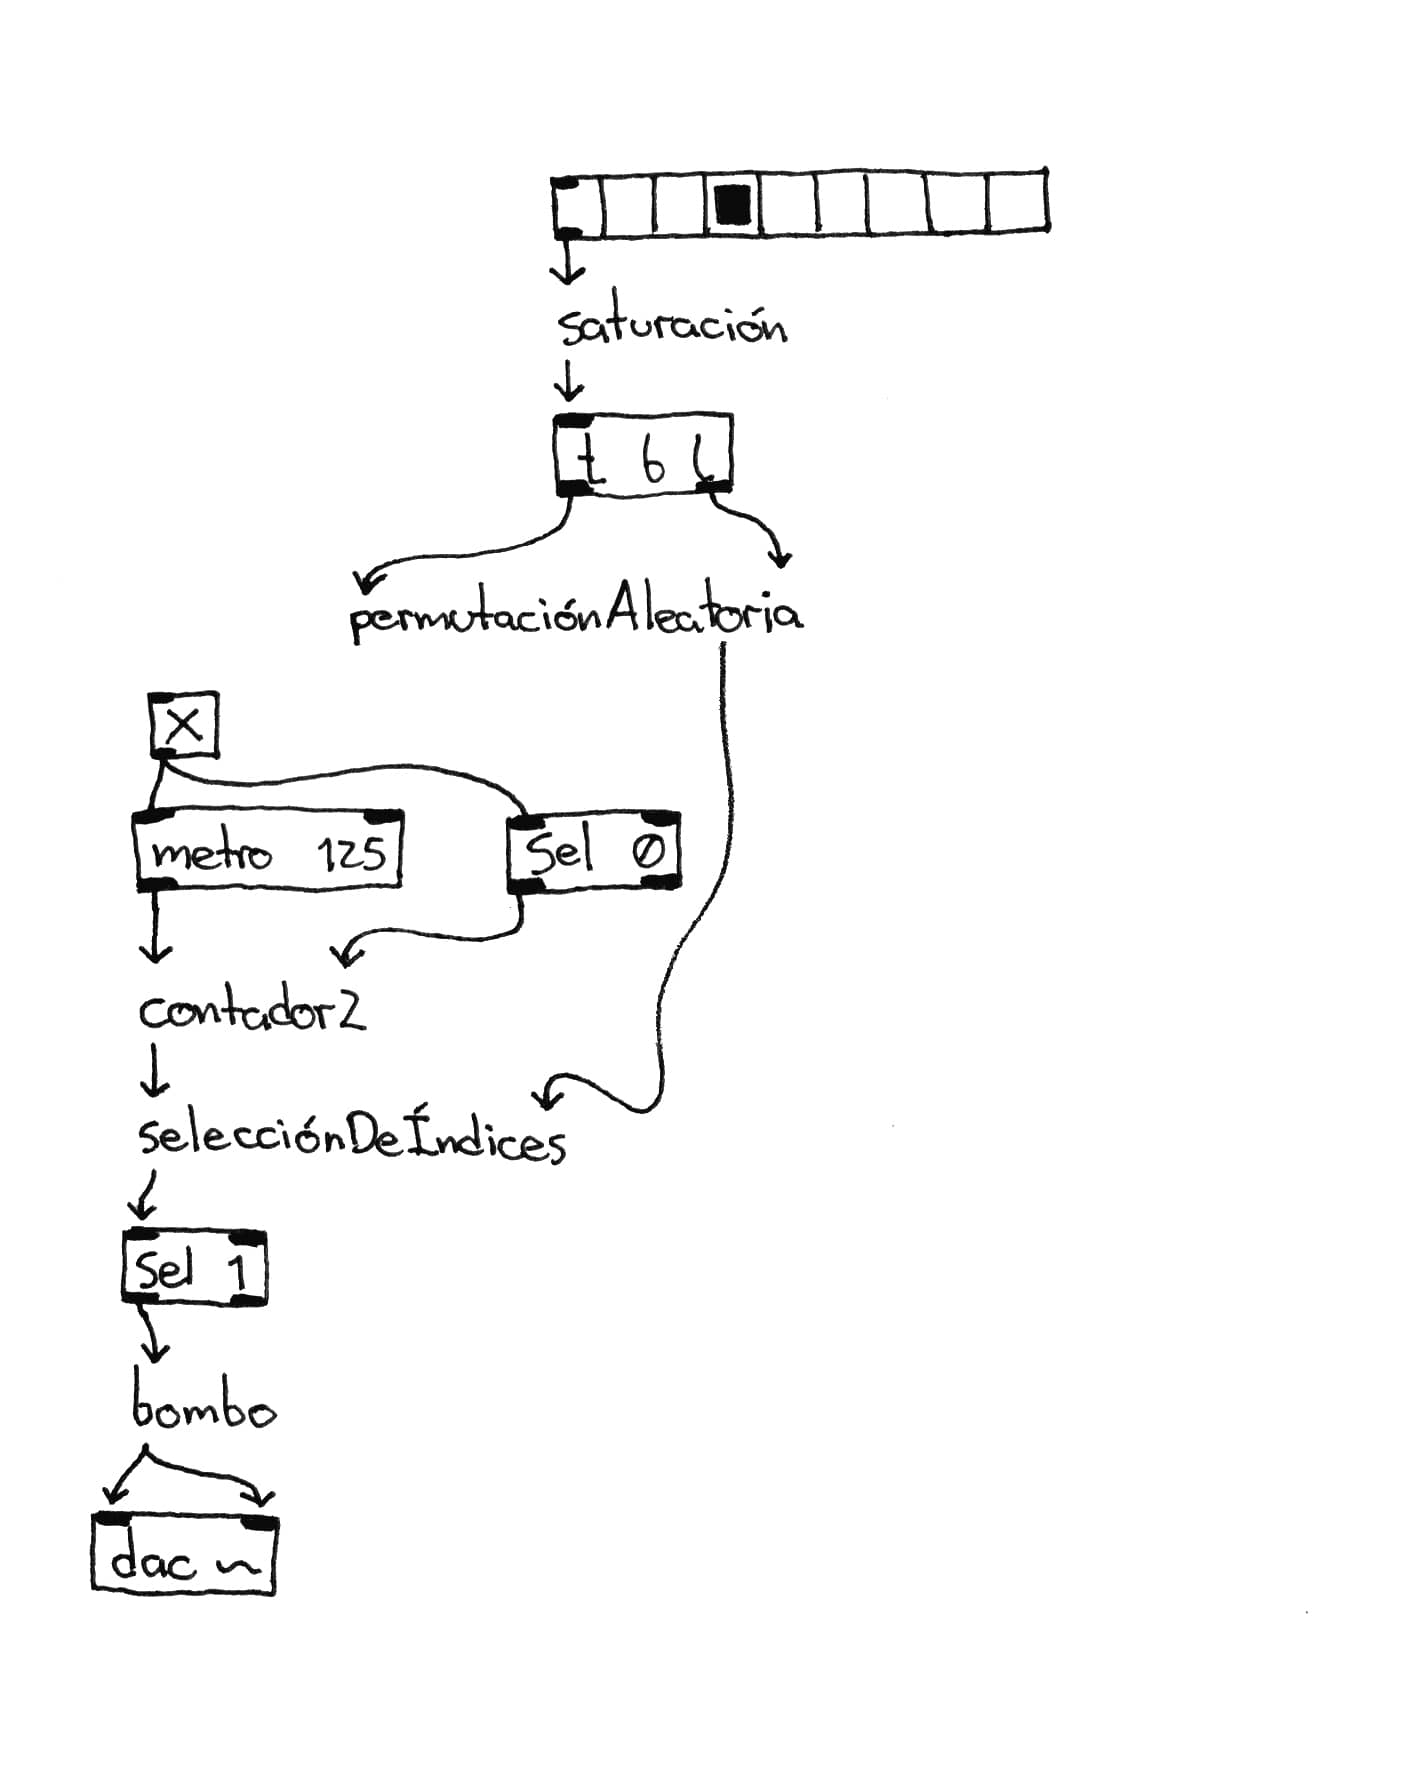 saturación
t b l
permutaciónAleatoria
X
metro 125
sel 0
contador2
selecciónDeÍndices
sel 1
bombo
dac ~